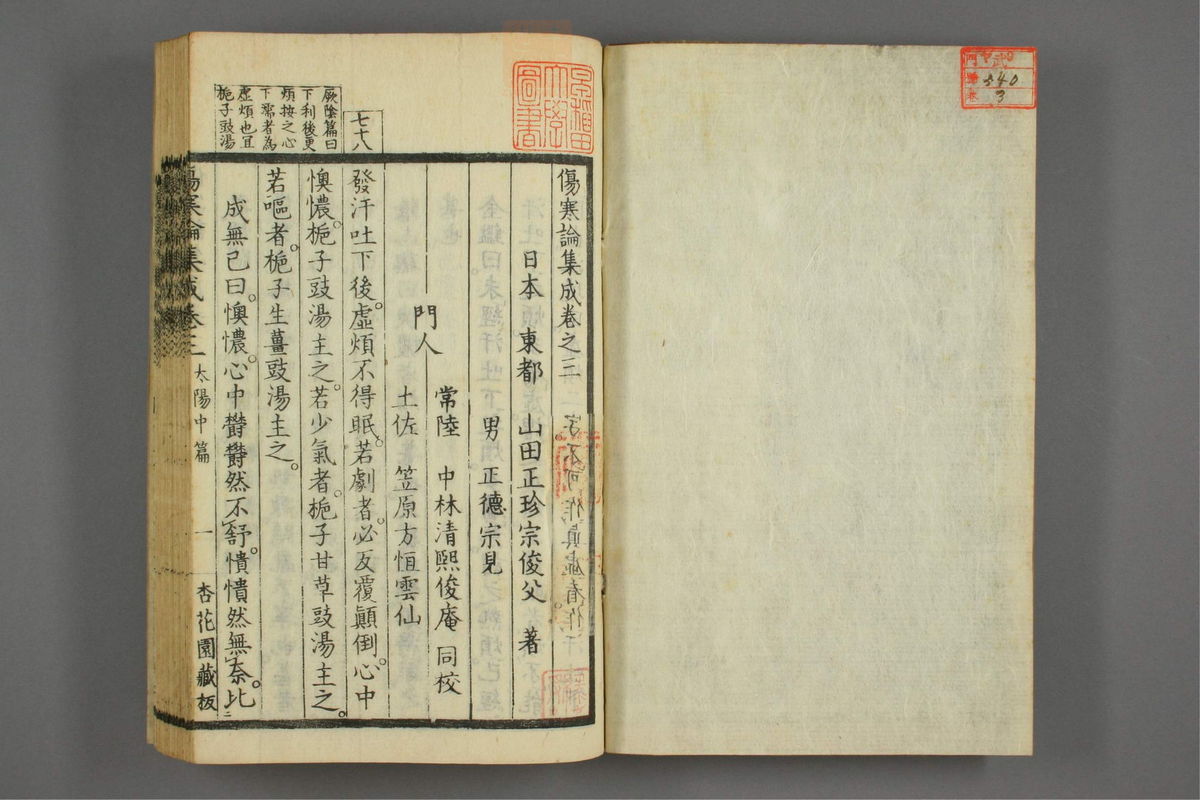 傷寒論集成卷之三
日本 東都 山田正珍宗俊父 著
男 正德宗見
常陸 中林清熙俊庵 同校
門人
土佐 笠原方恒雲仙
七十八
發汗吐下後。虛煩不得眠。若劇者。必反覆顚倒。心中
懊憹。梔子豉湯主之。若少氣者。梔子甘草豉湯主之。
若嘔者。梔子生薑豉湯主之。
厥陰篇曰
下利後更
煩按之心
下濡者為
虛煩也宜
梔子豉湯
成無己曰。懊憹。心中鬱鬱然不舒。憒憒然無奈。比二
傷寒論集成卷三 太陽中篇 一 杏花園藏板
早稲田
大學
圖書
門
號 540
卷 3